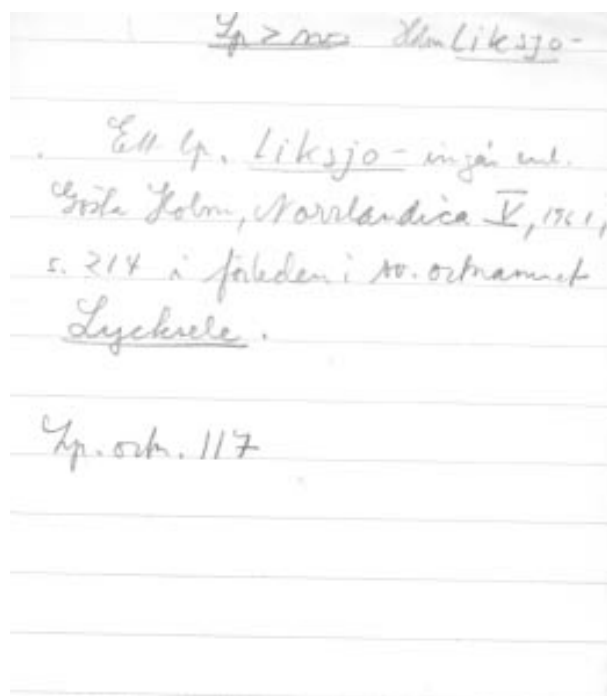 Lp > no Holm Liksjo-
Ett lp. Liksjo- ingår enl.
Gösta Holm, Norrlandica V, 1961,
s. 214 i förleden i sv. ortnamnet
Lycksele.
Lp. ortn. 117